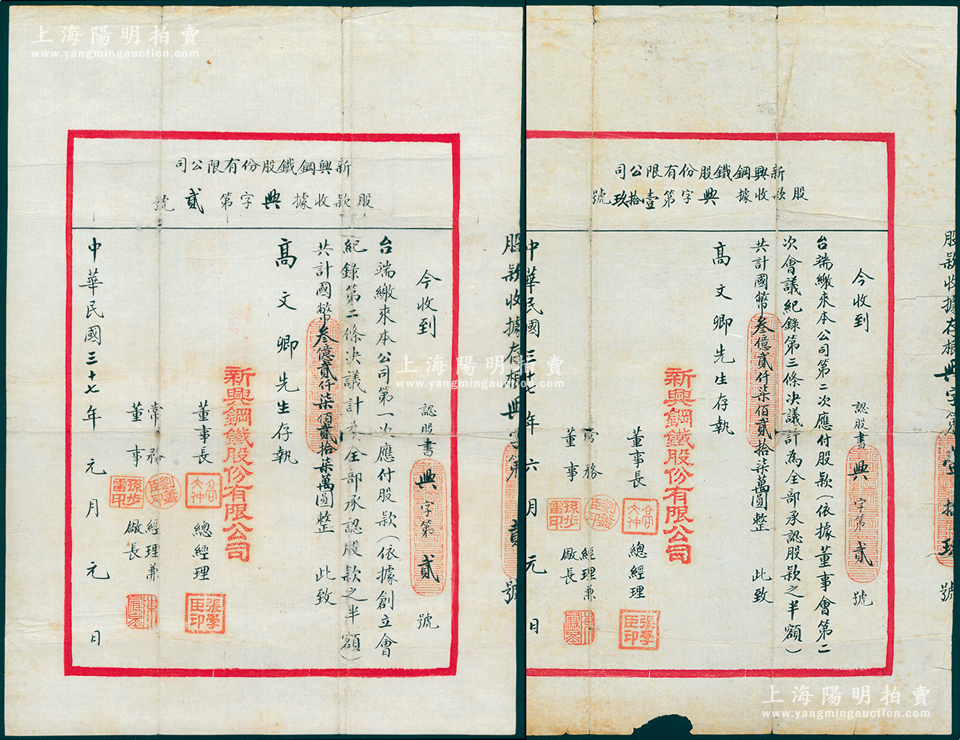 上海陽明拍賣
www.yangmingauction.com
新興鋼鐵股份有限公司
股款收據 興字第 貳 號
今收到 認股書 興 字第 貳 號
台端繳來本公司第一次應付股款(依據創立會
紀錄第二條決議計為全部承認股款之半額)
共計國幣叁億貳仟柒佰貳拾柒萬圓整 此致
高文卿先生存執
新興鋼鐵股份有限公司
董事長
總經理
張學臣印
常務董事
經理兼廠長
中華民國三十七年元月元日
股款收據存根 興字第 貳 號
新興鋼鐵股份有限公司
股款收據 興字第壹拾玖號
今收到 認股書 興 字第 貳 號
台端繳來本公司第二次應付股款(依據董事會第二
次會議紀錄第三條決議計為全部承認股款之半額)
共計國幣叁億貳仟柒佰貳拾柒萬圓整 此致
高文卿先生存執
新興鋼鐵股份有限公司
董事長
總經理
張學臣印
董事
經理兼廠長
中華民國三十七年六月元日
股款收據存根 興字第壹拾玖號
上海陽明拍賣
www.yangmingauction.com
上海陽明拍賣
www.yangmingauction.com